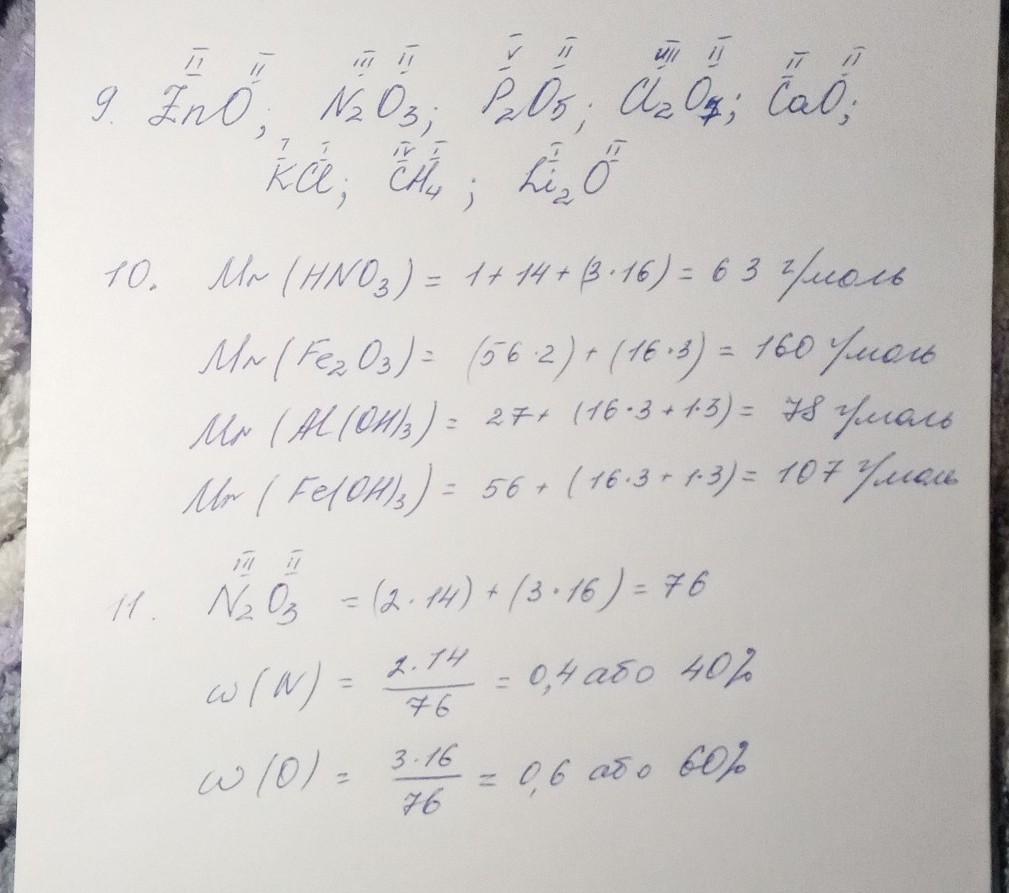 9. ZnO; N₂O₃; P₂O₅; Cl₂O₇; CaO;
KCl; CH₄; Li₂O
10. Mr (HNO₃) = 1 + 14 + (3·16) = 63 г/моль
Mr (Fe₂O₃) = (56·2) + (16·3) = 160 г/моль
Mr (Al(OH)₃) = 27 + (16·3 + 1·3) = 78 г/моль
Mr (Fe(OH)₃) = 56 + (16·3 + 1·3) = 107 г/моль
III II
11. N₂O₃ = (2·14) + (3·16) = 76
w(N) = 2·14/76 = 0,4 або 40%
w(O) = 3·16/76 = 0,6 або 60%